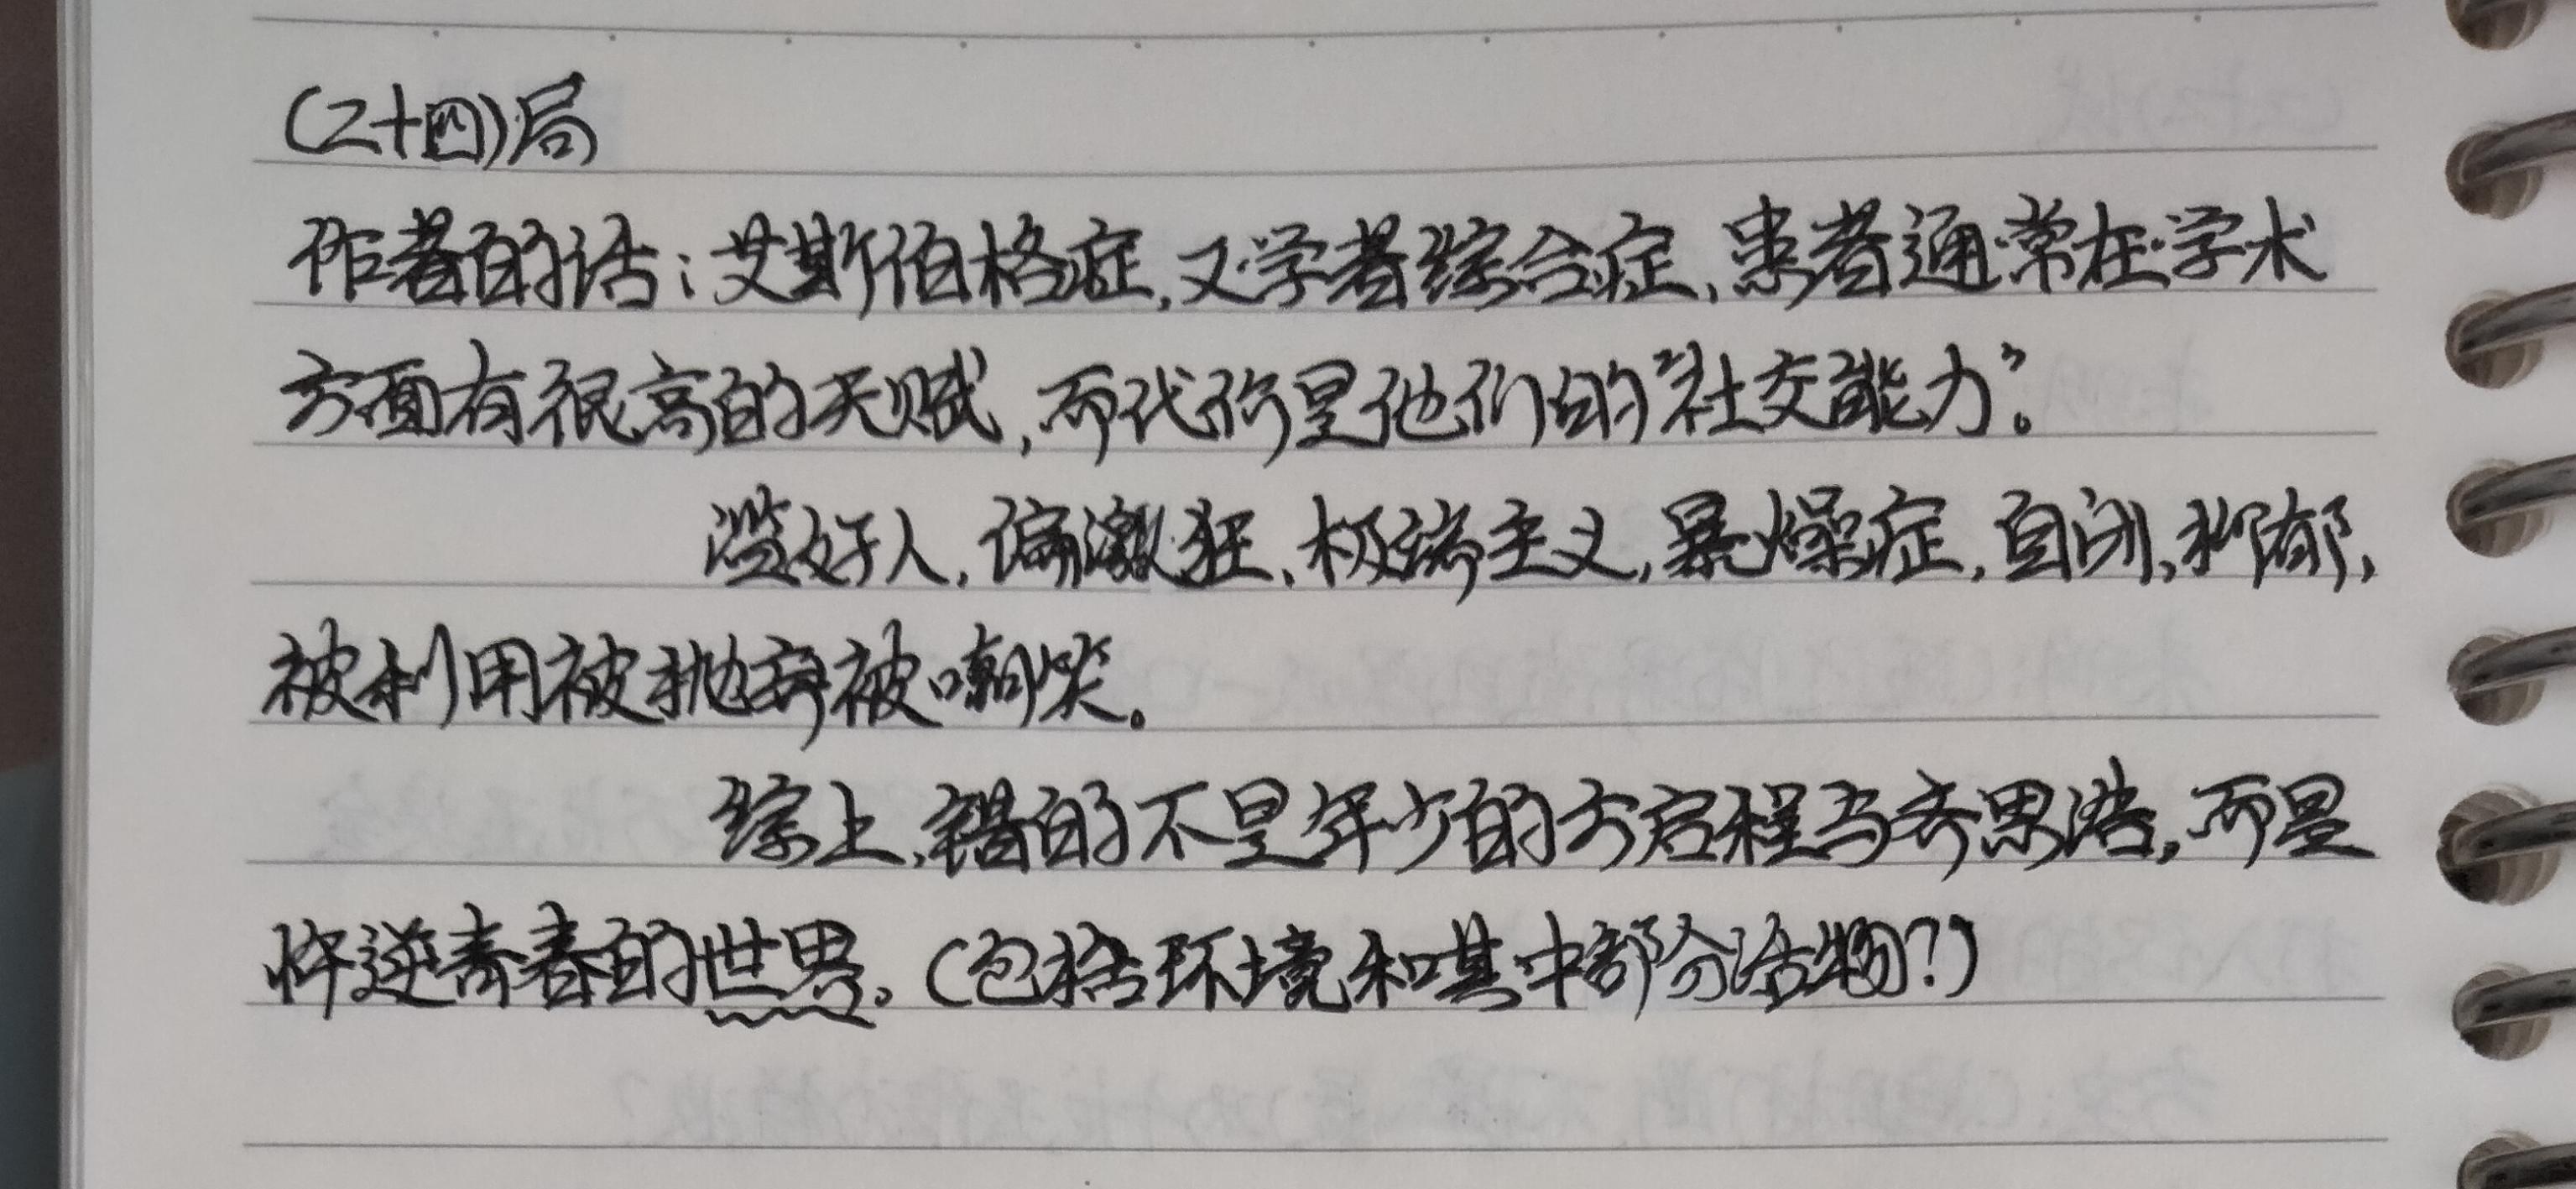 (二十四)局
作者的话:艾斯伯格症,又学者综合症,患者通常在学术
方面有很高的天赋,而代价是他们的“社交能力”。
滥好人,偏激狂,极端主义,暴燥症,自闭,抑郁,
被利用被抛弃被嘲笑。
综上,错的不是年少的方启程与齐思浩,而是
忤逆青春的世界。(包括环境和其中部分活物?)